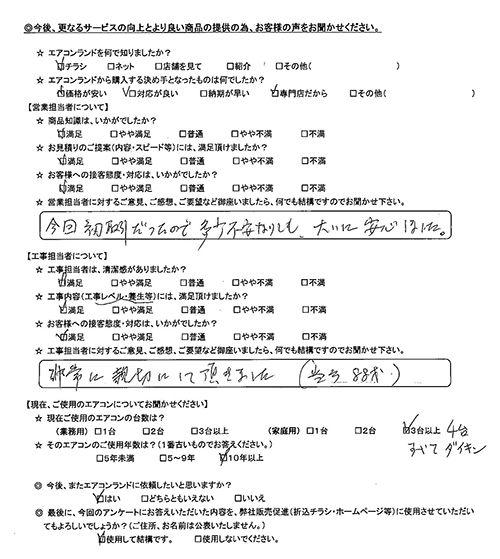 ◎今後、更なるサービスの向上とより良い商品の提供の為、お客様の声をお聞かせください。
☆ エアコンランドを何で知りましたか？
☑チラシ □ネット □店舗を見て □紹介 □その他( )
☆ エアコンランドから購入する決め手となったものは何でしたか？
☑価格が安い ☑対応が良い □納期が早い ☑専門店だから □その他( )
【営業担当者について】
☆ 商品知識は、いかがでしたか？
☑満足 □やや満足 □普通 □やや不満 □不満
☆ お見積りのご提案(内容・スピード等)には、満足頂けましたか？
☑満足 □やや満足 □普通 □やや不満 □不満
☆ お客様への接客態度・対応は、いかがでしたか？
☑満足 □やや満足 □普通 □やや不満 □不満
☆ 営業担当者に対するご意見、ご感想、ご要望など御座いましたら、何でも結構ですのでお聞かせ下さい。
今回初取引だったので多少不安なりしも、大いに安心しました。
【工事担当者について】
☆ 工事担当者は、清潔感がありましたか？
☑満足 □やや満足 □普通 □やや不満 □不満
☆ 工事内容(工事レベル・養生等)には、満足頂けましたか？
☑満足 □やや満足 □普通 □やや不満 □不満
☆ お客様への接客態度・対応は、いかがでしたか？
☑満足 □やや満足 □普通 □やや不満 □不満
☆ 工事担当者に対するご意見、ご感想、ご要望など御座いましたら、何でも結構ですのでお聞かせ下さい。
非常に親切にして頂きました (当方88才)
【現在、ご使用のエアコンについてお聞かせください】
☆ 現在ご使用のエアコンの台数は？
(業務用) □1台 □2台 □3台以上 (家庭用) □1台 □2台 ☑3台以上 4台
すべてダイキン
☆ そのエアコンのご使用年数は？(1番古いものでお答えください。)
□5年未満 □5～9年 ☑10年以上
◎ 今後、またエアコンランドに依頼したいと思いますか？
☑はい □どちらともいえない □いいえ
◎ 最後に、今回のアンケートにお答えいただいた内容を、弊社販売促進(折込チラシ・ホームページ等)に使用させていただい
てもよろしいでしょうか？(ご住所、お名前は公表いたしません。)
☑使用して結構です。 □使用しないでください。